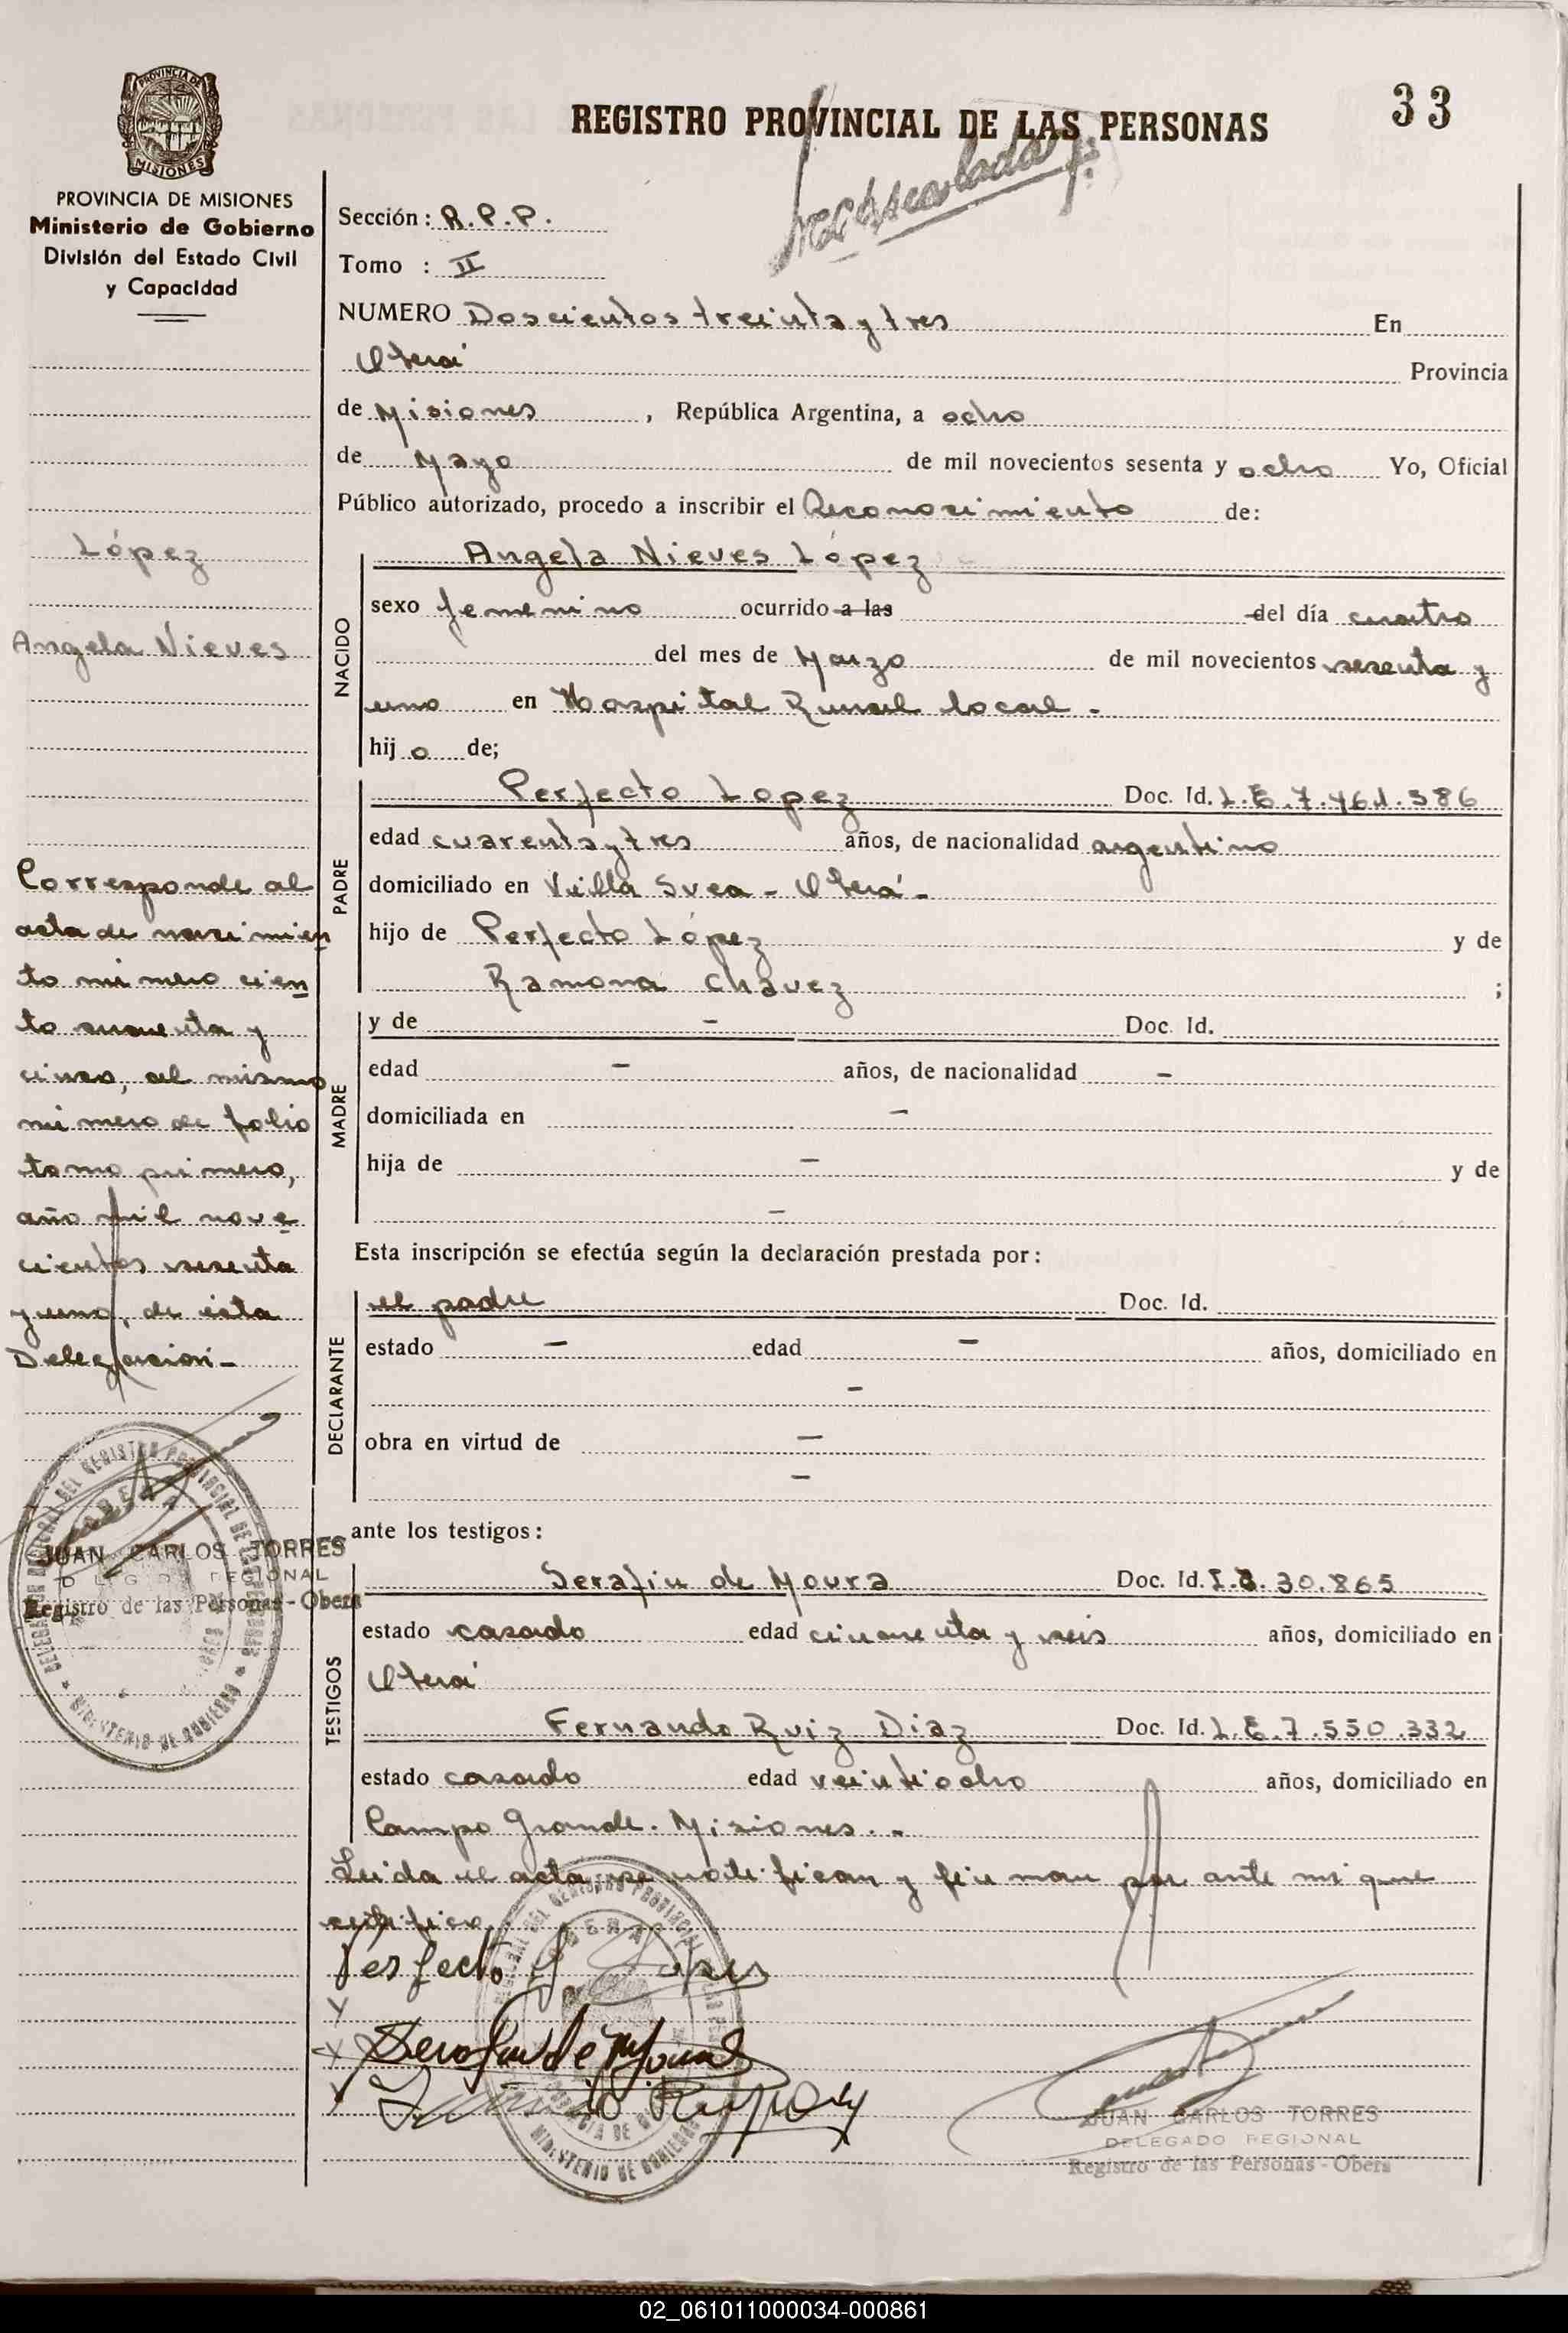 PROVINCIA DE
MISIONES
PROVINCIA DE MISIONES
Ministerio de Gobierno
División del Estado Civil
y Capacidad
REGISTRO PROVINCIAL DE LAS PERSONAS
33
Sección: R.P.P.
Tomo : II
NUMERO Doscientos treinta y tres En
Oberá Provincia
de Misiones , República Argentina, a ocho
de Mayo de mil novecientos sesenta y ocho Yo, Oficial
Público autorizado, procedo a inscribir el Reconocimiento de:
López
Angela Nieves
NACIDO
Angela Nieves López
sexo femenino ocurrido a las del día cuatro
del mes de Marzo de mil novecientos sesenta y
uno en Hospital Rural local.-
hij o de;
PADRE
Perfecto Lopez Doc. Id. L.E.7.461.586
edad cuarenta y tres años, de nacionalidad argentino
domiciliado en Villa Svea - Oberá.-
hijo de Perfecto López y de
Ramona Chávez ;
MADRE
y de - Doc. Id.
edad - años, de nacionalidad -
domiciliada en -
hija de - y de
-
Esta inscripción se efectúa según la declaración prestada por:
DECLARANTE
el padre Doc. Id.
estado - edad - años, domiciliado en
-
obra en virtud de -
-
ante los testigos:
TESTIGOS
Serafin de Moura Doc. Id. I.E. 30.865
estado casado edad cincuenta y seis años, domiciliado en
Oberá
Fernando Ruiz Diaz Doc. Id. L.E.7.550.332
estado casado edad veintiocho años, domiciliado en
Campo Grande. Misiones.-
Leida el acta se notifican y firman por ante mi que
certifico
Perfecto Lopez
Serafin de Moura
Fernando Ruiz Diaz
JUAN CARLOS TORRES
DELEGADO REGIONAL
Registro de las Personas - Oberá
Corresponde al
acta de nacimien
to número cien
to cuarenta y
cinco, al mismo
número de folio
tomo primero,
año mil nove
cientos sesenta
y uno, de ésta
Delegación.-
JUAN CARLOS TORRES
REGIONAL
Registro de las Personas - Oberá
DEL REGISTRO PROVINCIAL DE LAS PERSONAS
MINISTERIO DE GOBIERNO
02_061011000034-000861